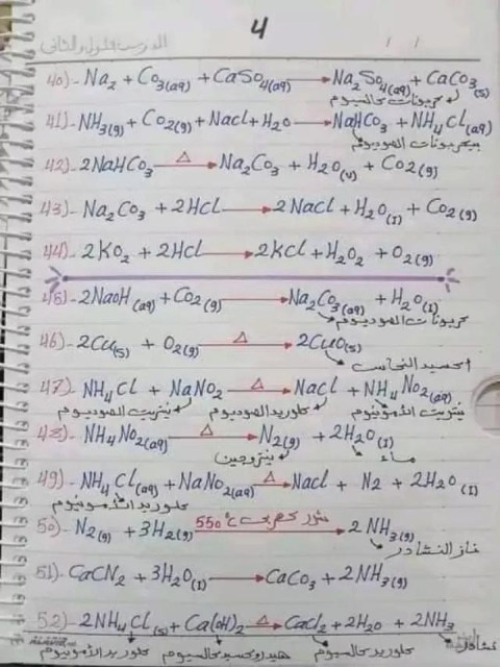 4
40)- Na₂ + Co₃(aq) + CaSo₄(aq) → Na₂So₄(aq) + CaCo₃(s)
كربونات كالسيوم
41)- NH₃(g) + Co₂(g) + Nacl + H₂o → NaHCo₃ + NH₄Cl(aq)
بيكربونات الصوديوم
42)- 2NaHCo₃ △→ Na₂Co₃ + H₂O(v) + Co₂(g)
43)- Na₂Co₃ + 2HCl → 2Nacl + H₂O(l) + Co₂(g)
44)- 2Ko₂ + 2Hcl → 2kcl + H₂O₂ + O₂(g)
45)- 2NaoH(aq) + Co₂(g) → Na₂Co₃(aq) + H₂O(l)
كربونات الصوديوم
46)- 2Cu(s) + O₂(g) △→ 2CuO(s)
اكسيد النحاس
47)- NH₄Cl + NaNO₂ △→ NaCl + NH₄NO₂(aq)
نيتريت الصوديوم كلوريد الصوديوم نيتريت الأمونيوم
48)- NH₄NO₂(aq) △→ N₂(g) + 2H₂O(l)
نيتروجين ماء
49)- NH₄Cl(aq) + NaNO₂(aq) △→ Nacl + N₂ + 2H₂O(l)
كلوريد الأمونيوم
50)- N₂(g) + 3H₂(g) 550°c → 2NH₃(g)
غاز النشادر
51)- CaCN₂ + 3H₂O(l) → CaCo₃ + 2NH₃(g)
52)- 2NH₄Cl(s) + Ca(oH)₂ △→ Cacl₂ + 2H₂O + 2NH₃
كلوريد الأمونيوم هيدروكسيد كالسيوم كلوريد كالسيوم نشادر